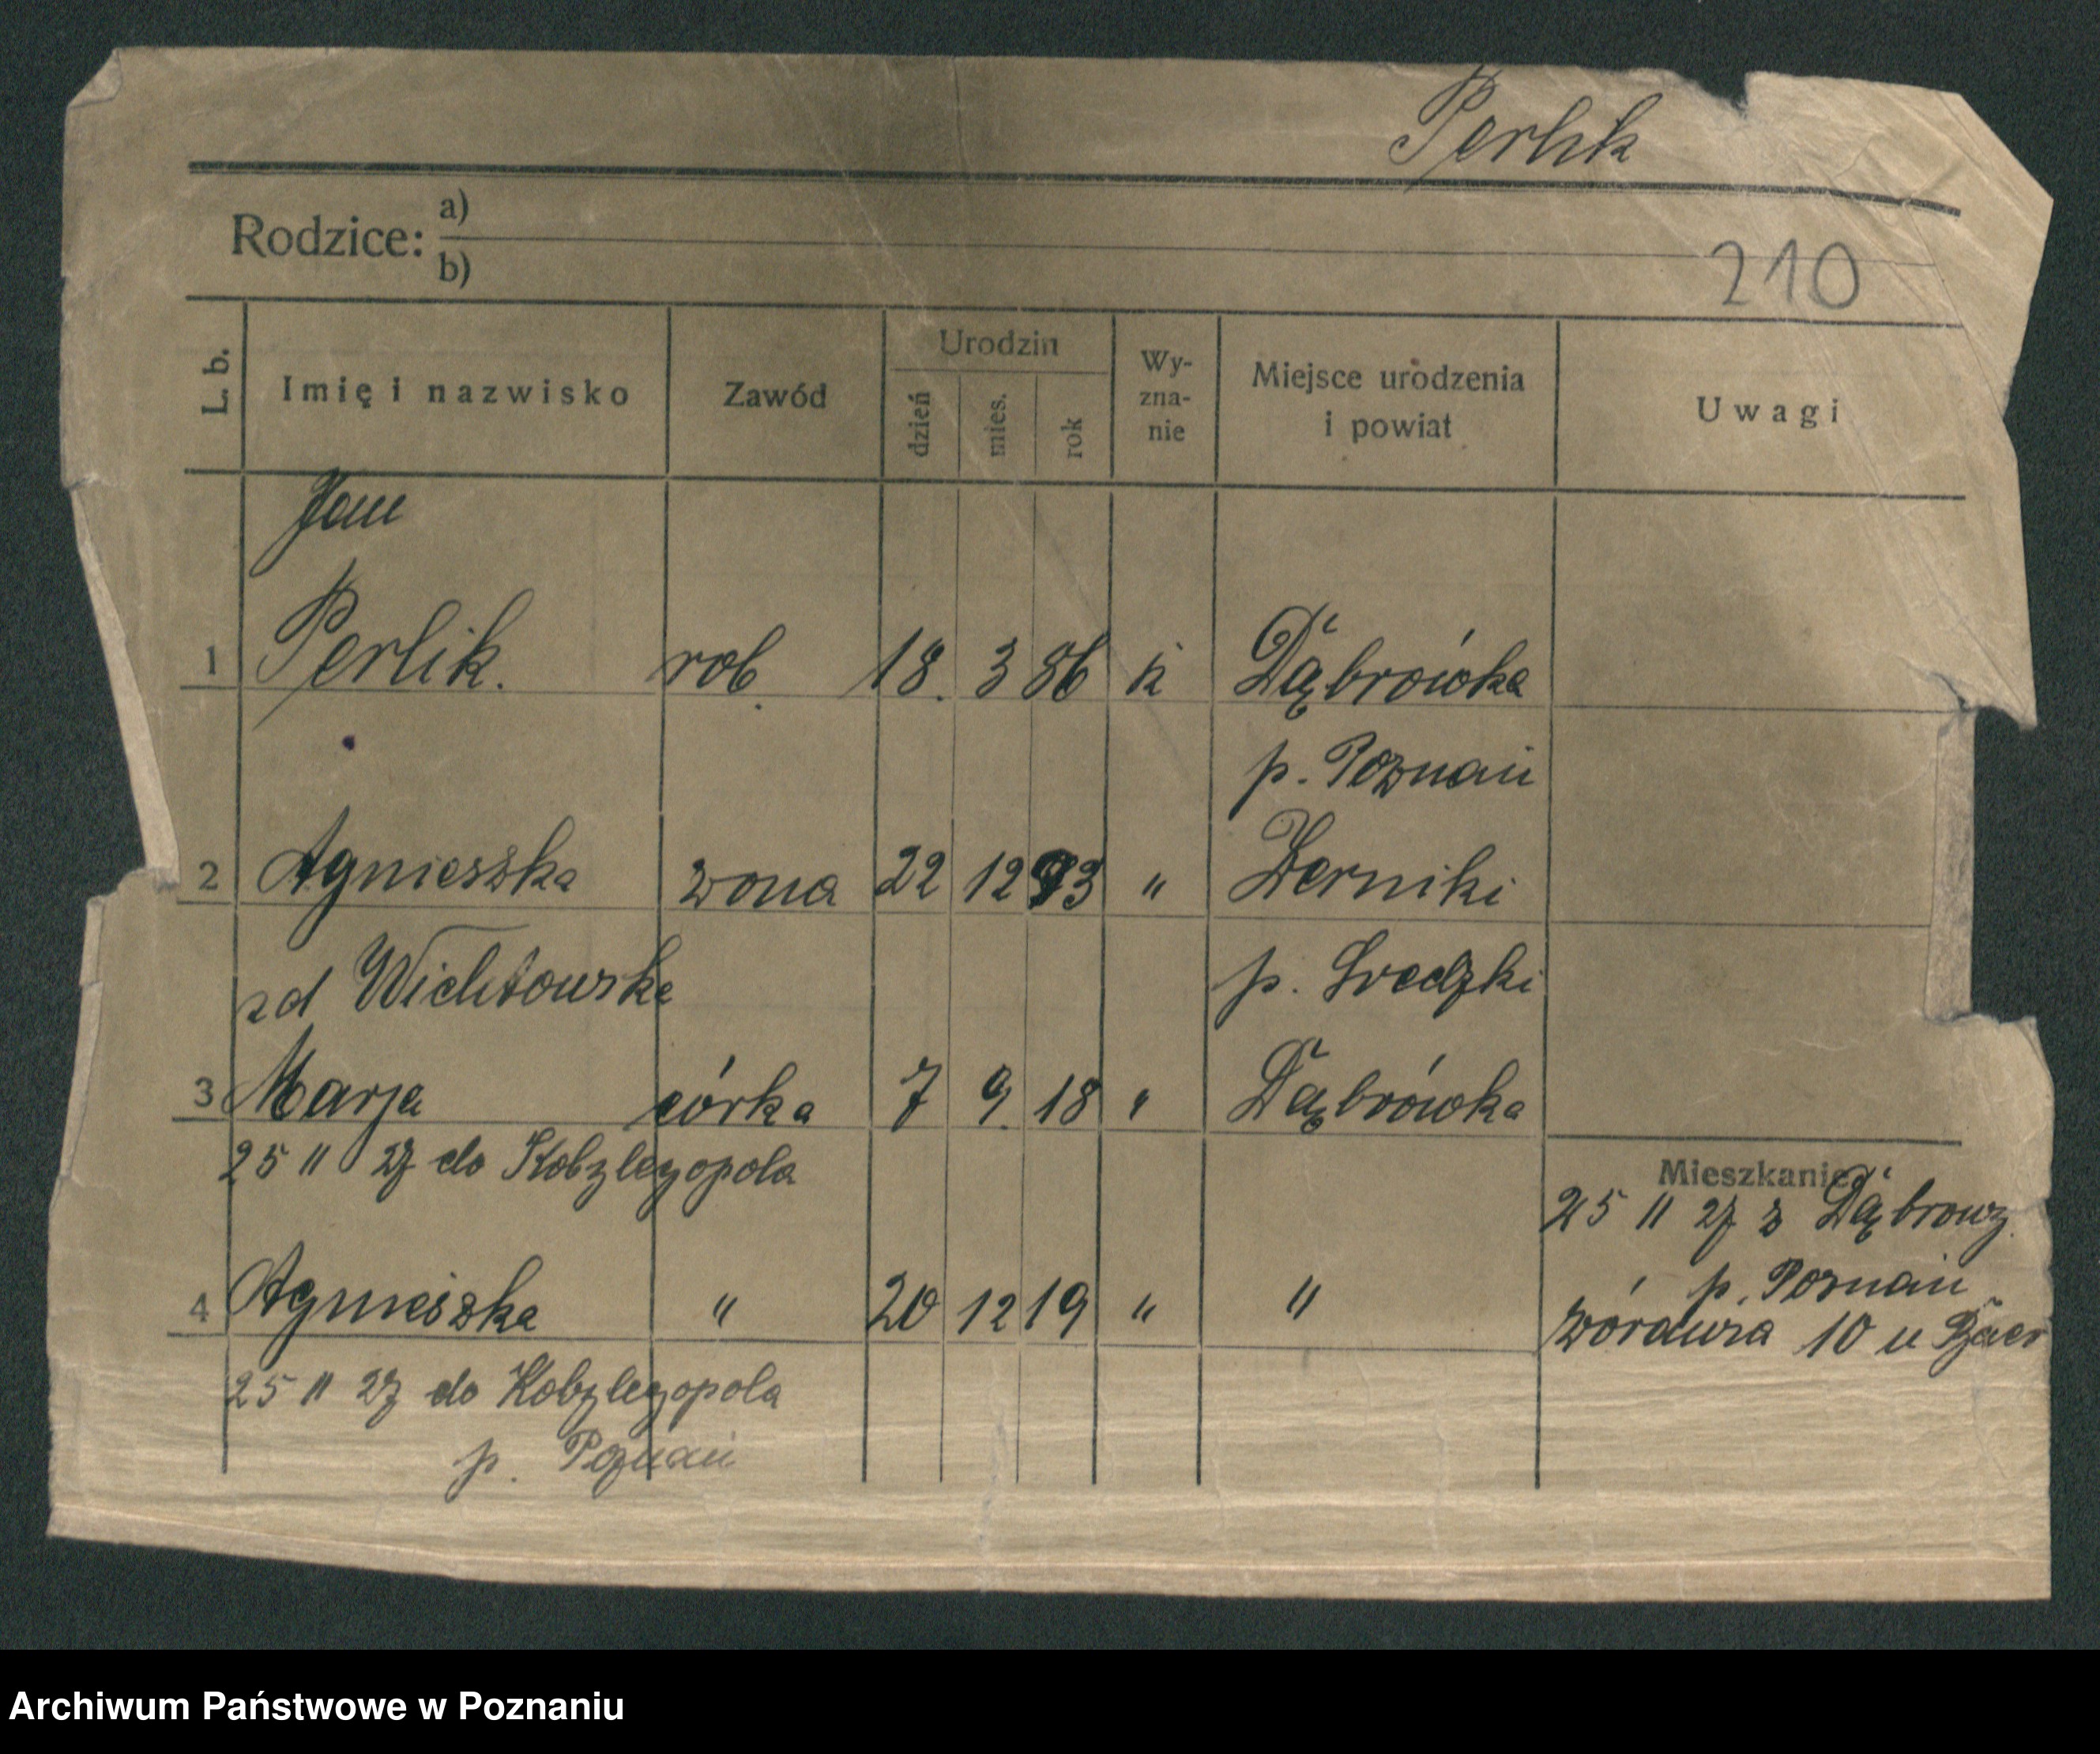 Perlik
Rodzice: a)
b)
210
L. b. Imię i nazwisko Zawód Urodzin dzień mies. rok Wy-zna-nie Miejsce urodzenia i powiat Uwagi
Jan
1 Perlik. rob. 18. 3 86 k Dąbrówka
p. Poznań
2 Agnieszka zona 22 12 93 " Zerniki
zd p. Sredzki
3 Marja córka 7 9. 18 " Dąbrówka
25 11 27 do Kobzlegopola
Mieszkanie
25 11 27 z
p. Poznań
4 Agnieszka " 20 12 19 " "
10 u
25 11 27 do Kobzlegopola
p. Poznań
Archiwum Państwowe w Poznaniu